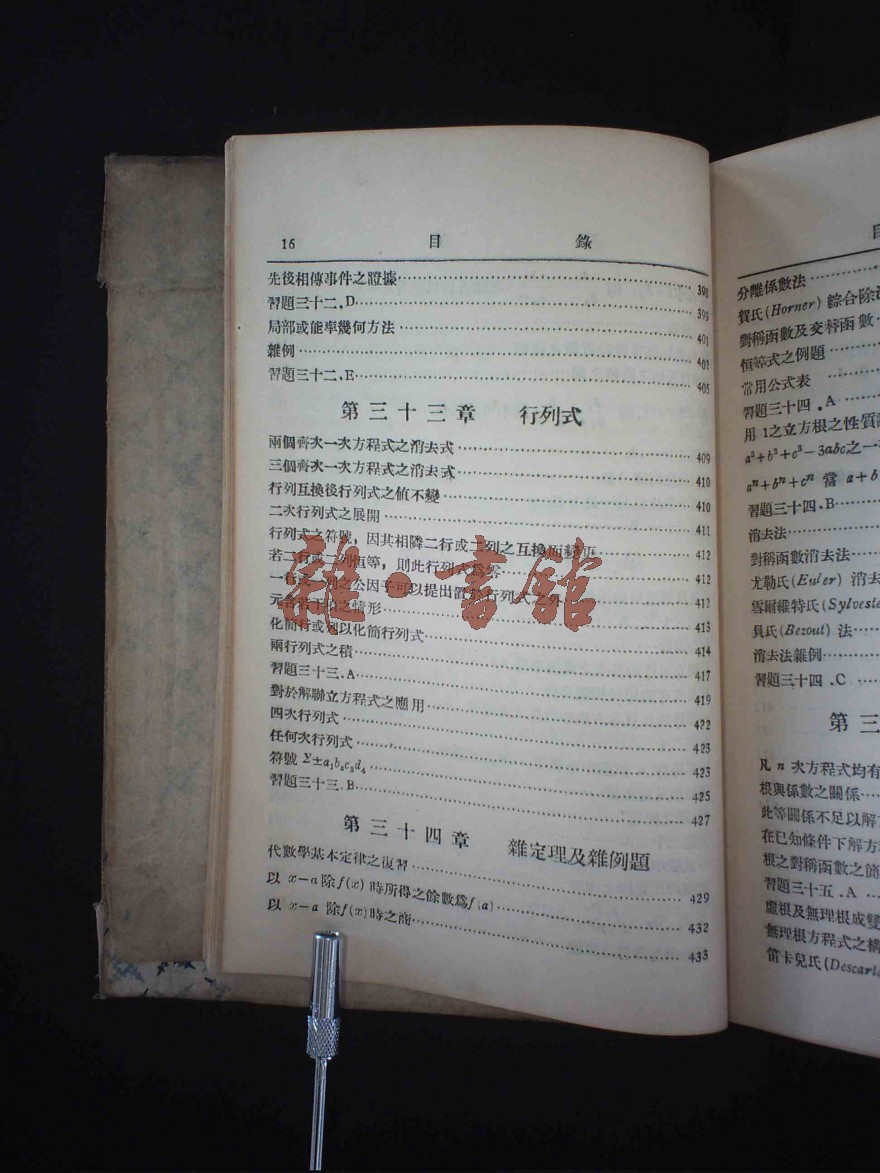 16 目 錄
先後相傳事件之證據 398
習題三十二.D 399
局部或能率幾何方法 401
雜例 402
習題三十二.E 405
第三十三章 行列式
兩個齊次一次方程式之消去式 409
三個齊次一次方程式之消去式 410
行列互換後行列式之値不變 410
二次行列式之展開 411
行列式之符號，因其相隣二行或二列之互換而變更 412
若二行或二列恒等，則此行列式爲零 412
一行或一列之公因子可以提出置於行列式之外 412
元含若干項之情形 413
化簡行或列以化簡行列式 414
兩行列式之積 417
習題三十三.A 419
對於解聯立方程式之應用 422
四次行列式 423
任何次行列式 423
符號 Σ±a₁b₂c₃d₄ 425
習題三十三.B 427
第三十四章 雜定理及雜例題
代數學基本定律之復習 429
以 x−a 除 f(x) 時所得之餘數爲 f(a) 432
以 x−a 除 f(x) 時之商 433
雜·書館
目
分離係數法
賀氏(Horner)綜合除
對稱函數及交替函數
恒等式之例題
常用公式表
習題三十四.A
用 1 之立方根之性質
a³+b³+c³−3abc之一
aⁿ+bⁿ+cⁿ 當 a+b
習題三十四.B
消去法
對稱函數消去法
尤勒氏(Euler)消去
雪爾維特氏(Sylveste
貝氏(Bezout)法
消去法雜例
習題三十四.C
第三
凡 n 次方程式均有
根與係數之關係
此等關係不足以解
在已知條件下解方
根之對稱函數之
習題三十五.A
虛根及無理根成雙
無理根方程式之構
笛卡兒氏(Descarte